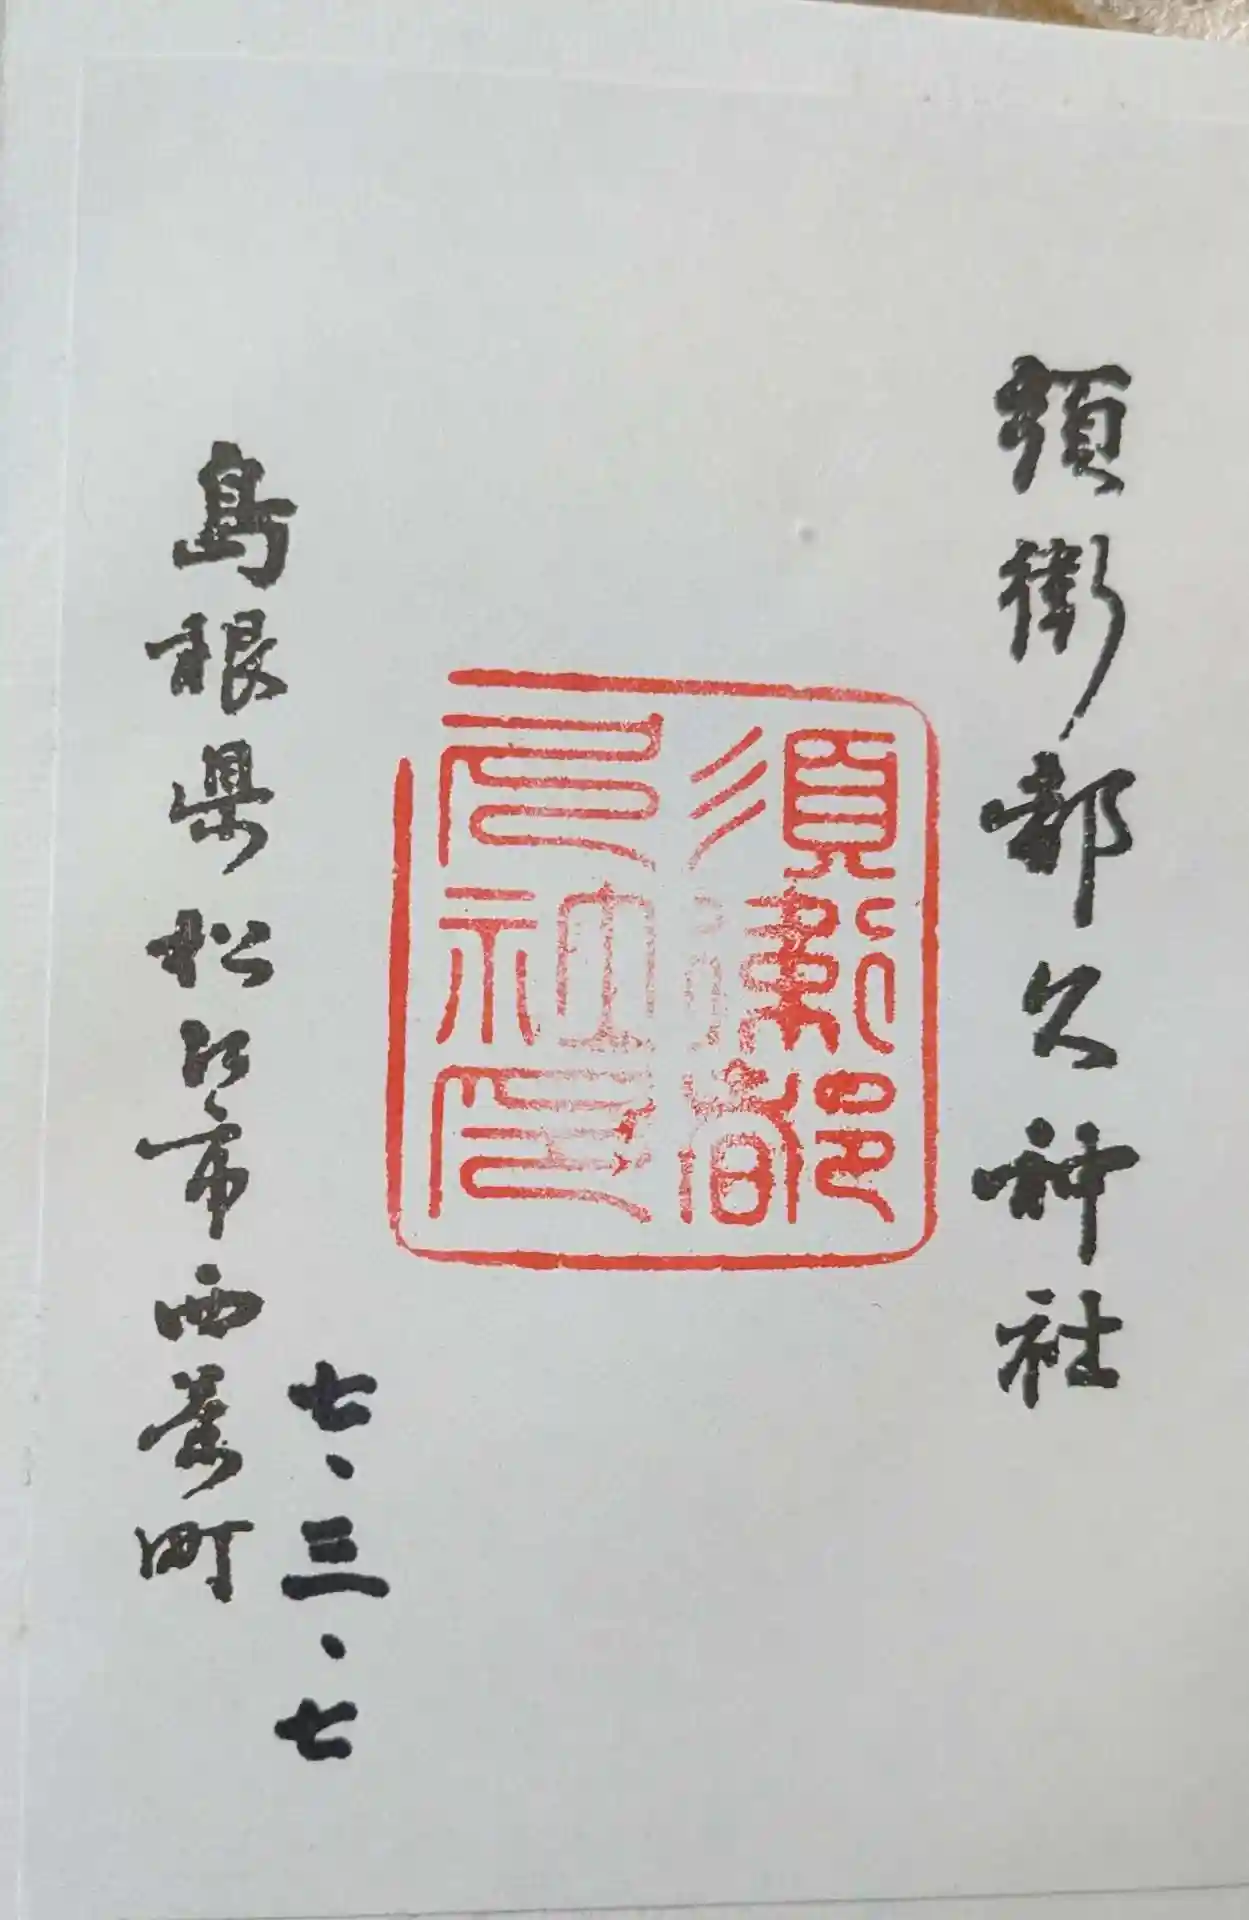 須衛都久神社
須衛都久社印
七、三、七
島根県松江市西茶町